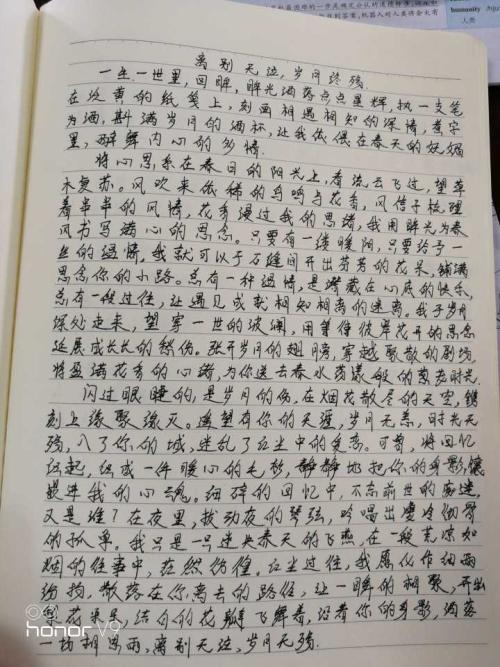 humanity
人类
离别无泣，岁月终残
一生一世里，回眸，眸光洒落点点星辉，执一支笔
在泛黄的纸笺上，刻画相遇相知的深情，煮字
为酒，斟满岁月的酒杯，让我依偎在春天的妖娆
里，酝酿内心的多情
将心思系在春日的阳光上，看流云飞过，望草
木复苏。风吹来依稀的鸟鸣与花香，风信子梳理
着串串的风情，花香漫过我的思绪，我用眸光为春
风书写满心的思念。只要有一缕暖阳，只要给予一
丝的温情，我就可以于石缝间开出芬芳的花朵，铺满
思念你的小路。总有一种温情，是潜藏在心底的快乐，
总有一段过往，让遇见成就相知相离的迷离。我于岁月
深处走来，望穿一世的波澜，用等待彼岸花开的思念
延展成长长的愁伤。张开岁月的翅膀，穿越聚散的剧线
将盈满花香的心绪，为你送去春水荡漾般的葱茏时光
闪过眼睫的，是岁月的伤，在烟花散尽的天空，镌
刻上缘聚缘灭。遥望有你的天涯，岁月无恙，时光无
残，入了你的城，迷乱了红尘中的爱恋。可曾，将回忆
织起，织成一件暖心的毛衫，静静地把你的身影镶
嵌进我的心魂。细碎的回忆中，不忘前世的邂逅，
又是谁？在夜里，拨动夜的琴弦，吟唱出凄冷彻骨
的孤单。我只是一只迷失春天的飞燕，在一般荒凉如
烟的往事中，茫然彷徨。红尘过往，我愿化作细雨
纷扬，散落在你离去的路径，让一眸的相聚，开出
梨花
，结局的花瓣飞舞着，沿着你的身影，洒落
一场相思雨，离别无泣，岁月无残。
honor V9